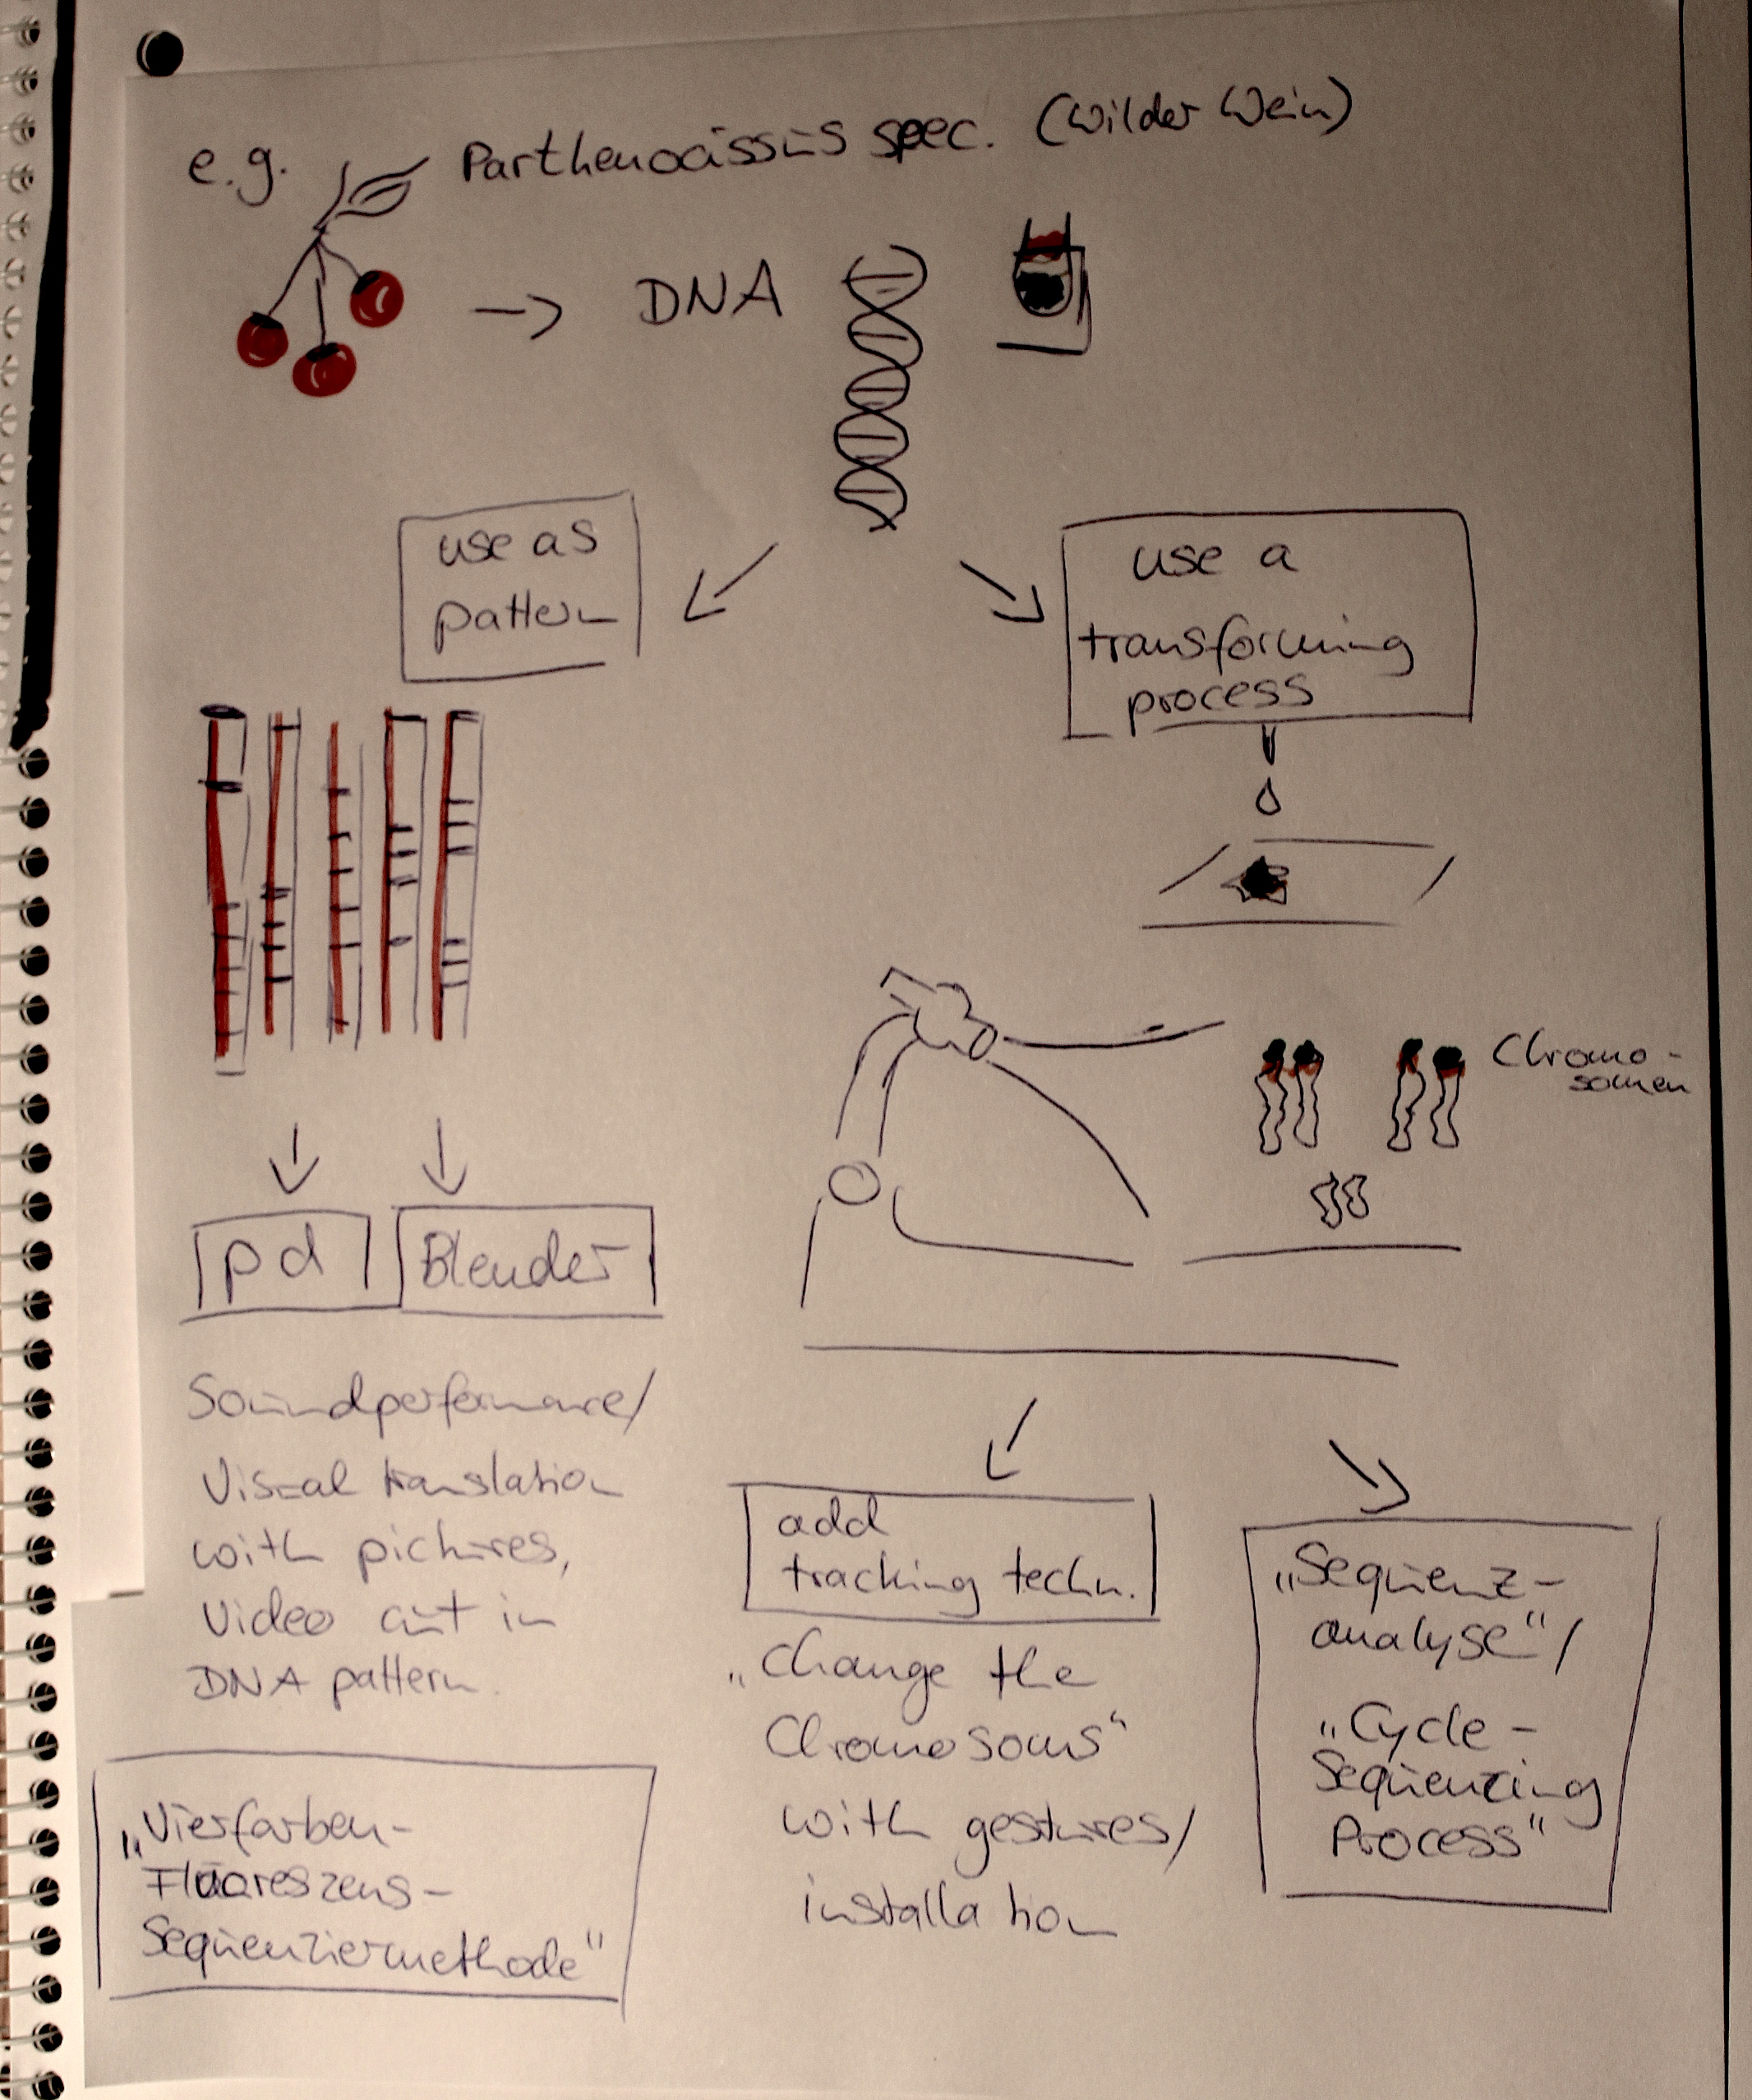 e.g. Parthenocissus spec. (Wilder Wein)
-> DNA
use as
pattern
use a
transforming
process
Chromo-
somen
pd
Blender
Soundperformance/
Visual translation
with pictures,
Video cut in
DNA pattern.
"Vierfarben-
Fluoreszens-
Sequenziermethode"
add
tracking techn.
„Change the
Chromosoms“
with gestures/
installation
„Sequenz-
analyse“/
„Cycle-
Sequenzing
Process“